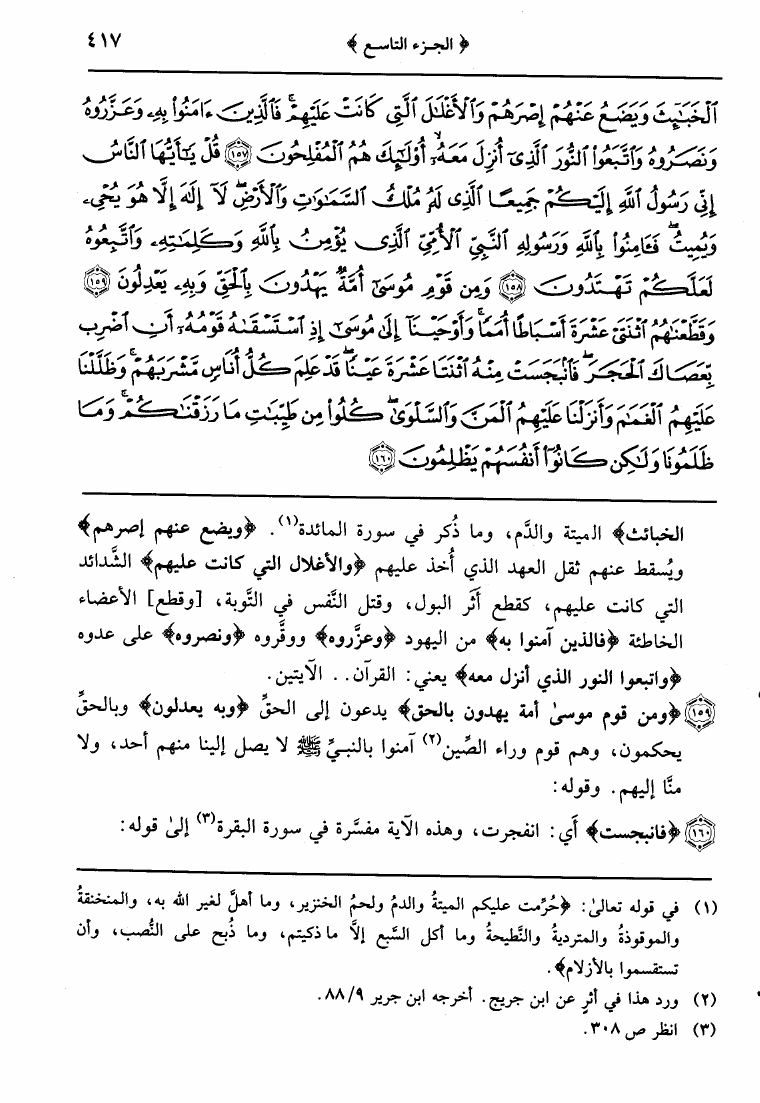 ﴿ الجزء التاسع ﴾ ٤١٧
ٱلْخَبَٰٓئِثَ وَيَضَعُ عَنْهُمْ إِصْرَهُمْ وَٱلْأَغْلَٰلَ ٱلَّتِى كَانَتْ عَلَيْهِمْ ۚ فَٱلَّذِينَ ءَامَنُوا۟ بِهِۦ وَعَزَّرُوهُ
وَنَصَرُوهُ وَٱتَّبَعُوا۟ ٱلنُّورَ ٱلَّذِىٓ أُنزِلَ مَعَهُۥٓ ۙ أُو۟لَٰٓئِكَ هُمُ ٱلْمُفْلِحُونَ ﴿١٥٧﴾ قُلْ يَٰٓأَيُّهَا ٱلنَّاسُ
إِنِّى رَسُولُ ٱللَّهِ إِلَيْكُمْ جَمِيعًا ٱلَّذِى لَهُۥ مُلْكُ ٱلسَّمَٰوَٰتِ وَٱلْأَرْضِ ۖ لَآ إِلَٰهَ إِلَّا هُوَ يُحْىِۦ
وَيُمِيتُ ۖ فَـَٔامِنُوا۟ بِٱللَّهِ وَرَسُولِهِ ٱلنَّبِىِّ ٱلْأُمِّىِّ ٱلَّذِى يُؤْمِنُ بِٱللَّهِ وَكَلِمَٰتِهِۦ وَٱتَّبِعُوهُ
لَعَلَّكُمْ تَهْتَدُونَ ﴿١٥٨﴾ وَمِن قَوْمِ مُوسَىٰٓ أُمَّةٌ يَهْدُونَ بِٱلْحَقِّ وَبِهِۦ يَعْدِلُونَ ﴿١٥٩﴾
وَقَطَّعْنَٰهُمُ ٱثْنَتَىْ عَشْرَةَ أَسْبَاطًا أُمَمًا ۚ وَأَوْحَيْنَآ إِلَىٰ مُوسَىٰٓ إِذِ ٱسْتَسْقَىٰهُ قَوْمُهُۥٓ أَنِ ٱضْرِب
بِّعَصَاكَ ٱلْحَجَرَ ۖ فَٱنۢبَجَسَتْ مِنْهُ ٱثْنَتَا عَشْرَةَ عَيْنًا ۖ قَدْ عَلِمَ كُلُّ أُنَاسٍ مَّشْرَبَهُمْ ۚ وَظَلَّلْنَا
عَلَيْهِمُ ٱلْغَمَٰمَ وَأَنزَلْنَا عَلَيْهِمُ ٱلْمَنَّ وَٱلسَّلْوَىٰ ۖ كُلُوا۟ مِن طَيِّبَٰتِ مَا رَزَقْنَٰكُمْ ۚ وَمَا
ظَلَمُونَا وَلَٰكِن كَانُوٓا۟ أَنفُسَهُمْ يَظْلِمُونَ ﴿١٦٠﴾
الخبائث﴾ الميتة والدَّم، وما ذُكر في سورة المائدة(١). ﴿ويضع عنهم إصرهم﴾
ويُسقط عنهم ثقل العهد الذي أُخذ عليهم ﴿والأغلال التي كانت عليهم﴾ الشَّدائد
التي كانت عليهم، كقطع أَثَر البول، وقتل النَّفس في التَّوبة، [وقطع] الأعضاء
الخاطئة ﴿فالذين آمنوا به﴾ من اليهود ﴿وعزَّروه﴾ ووقَّروه ﴿ونصروه﴾ على عدوه
﴿واتبعوا النور الذي أنزل معه﴾ يعني: القرآن.. الآيتين.
(١٥٩) ﴿ومن قوم موسىٰ أمة يهدون بالحق﴾ يدعون إلى الحقِّ ﴿وبه يعدلون﴾ وبالحقِّ
يحكمون، وهم قوم وراء الصِّين(٢) آمنوا بالنبيِّ ﷺ لا يصل إلينا منهم أحد، ولا
منَّا إليهم. وقوله:
(١٦٠) ﴿فانبجست﴾ أَي: انفجرت، وهذه الآية مفسَّرة في سورة البقرة(٣) إلىٰ قوله:
(١) في قوله تعالىٰ: ﴿حُرِّمت عليكم الميتةُ والدمُ ولحمُ الخنزير، وما أهلَّ لغير الله به، والمنخنقةُ
والموقوذةُ والمترديةُ والنَّطيحةُ وما أكل السَّبع إلَّا ما ذكيتم، وما ذُبح على النُّصب، وأن
تستقسموا بالأزلام﴾.
(٢) ورد هذا في أثرٍ عن ابن جريج. أخرجه ابن جرير ٩/ ٨٨.
(٣) انظر ص ٣٠٨.